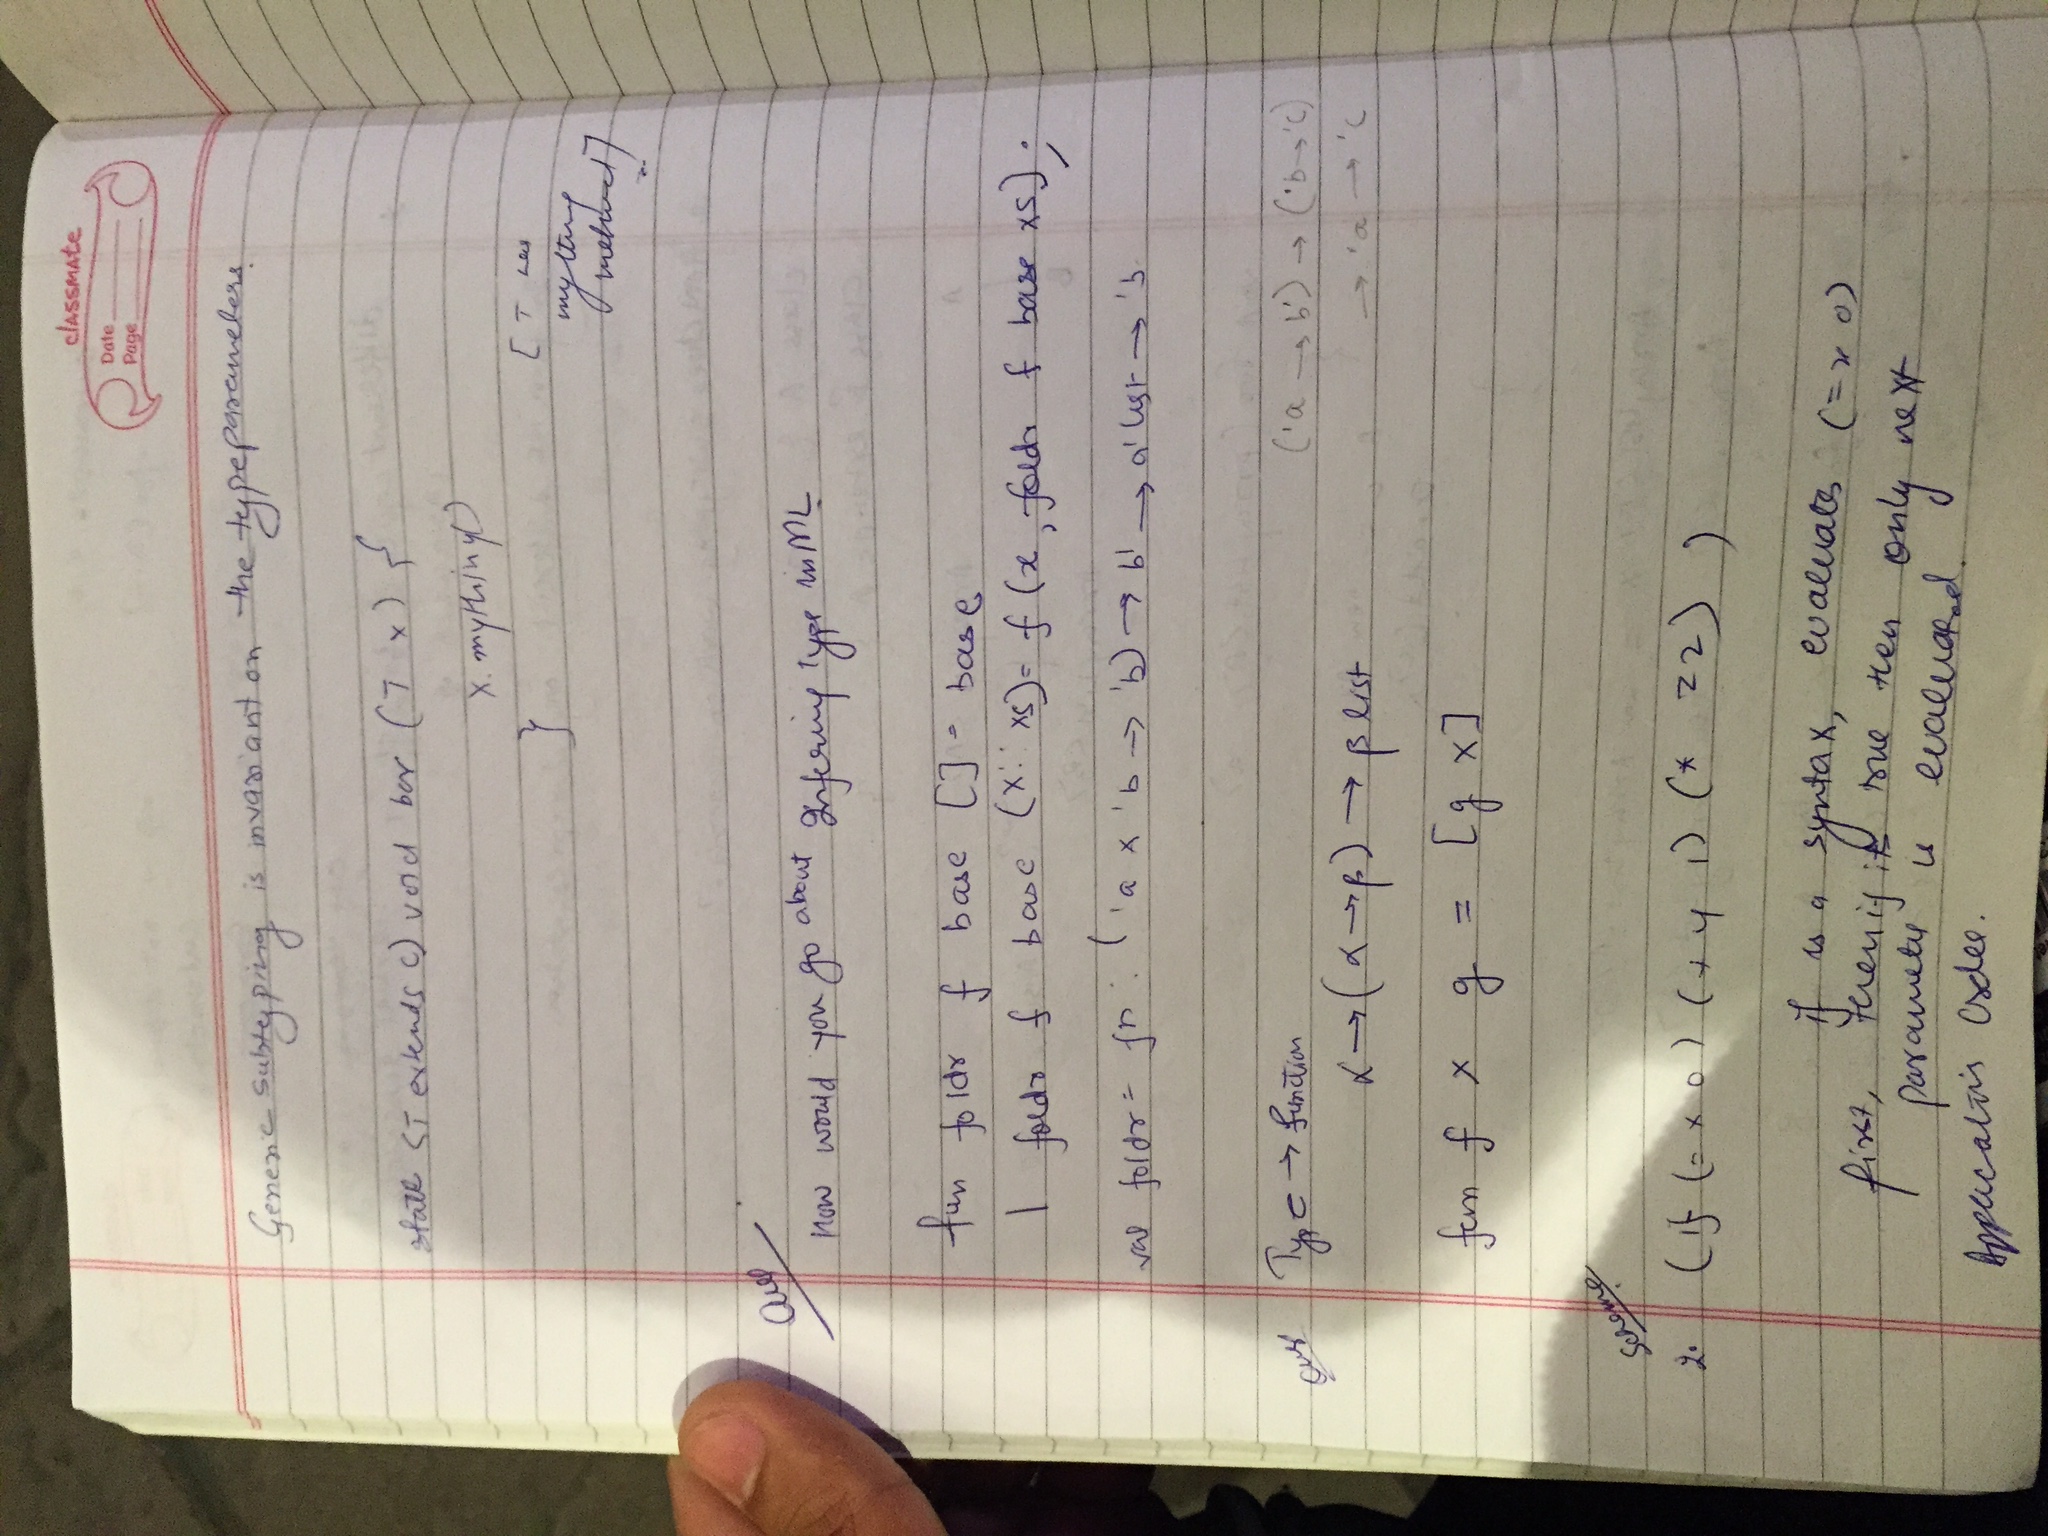 classmate
Date
Page
Generic subtyping is invariant on the typeparameters.
static <T extends C> void bar (T x) {
x.mything()
}
[T has
mything
method]
Que
How would you go about Infering Type in ML
fun foldr f base [] = base
| foldr f base (x::xs) = f (x, foldr f base xs);
val foldr = fn : ('a x 'b -> 'b) -> b' -> a' list -> 'b
Que
Type -> function
('a -> b') -> ('b -> 'c)
-> 'a -> 'c
α -> (α -> β) -> β list
fun f x g = [g x]
Scheme
2. (if (= x 0) (+ y 1) (* 2 2))
if is a syntax, evaluates (= x 0)
first, then if its true then only next
parameter is evaluated.
Applicative Order.